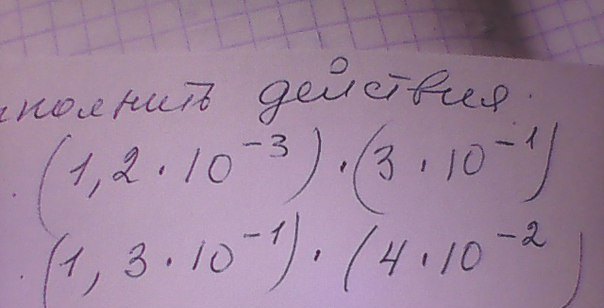 полнить действия.
(1,2 · 10⁻³) · (3 · 10⁻¹)
(1,3 · 10⁻¹) · (4 · 10⁻²)